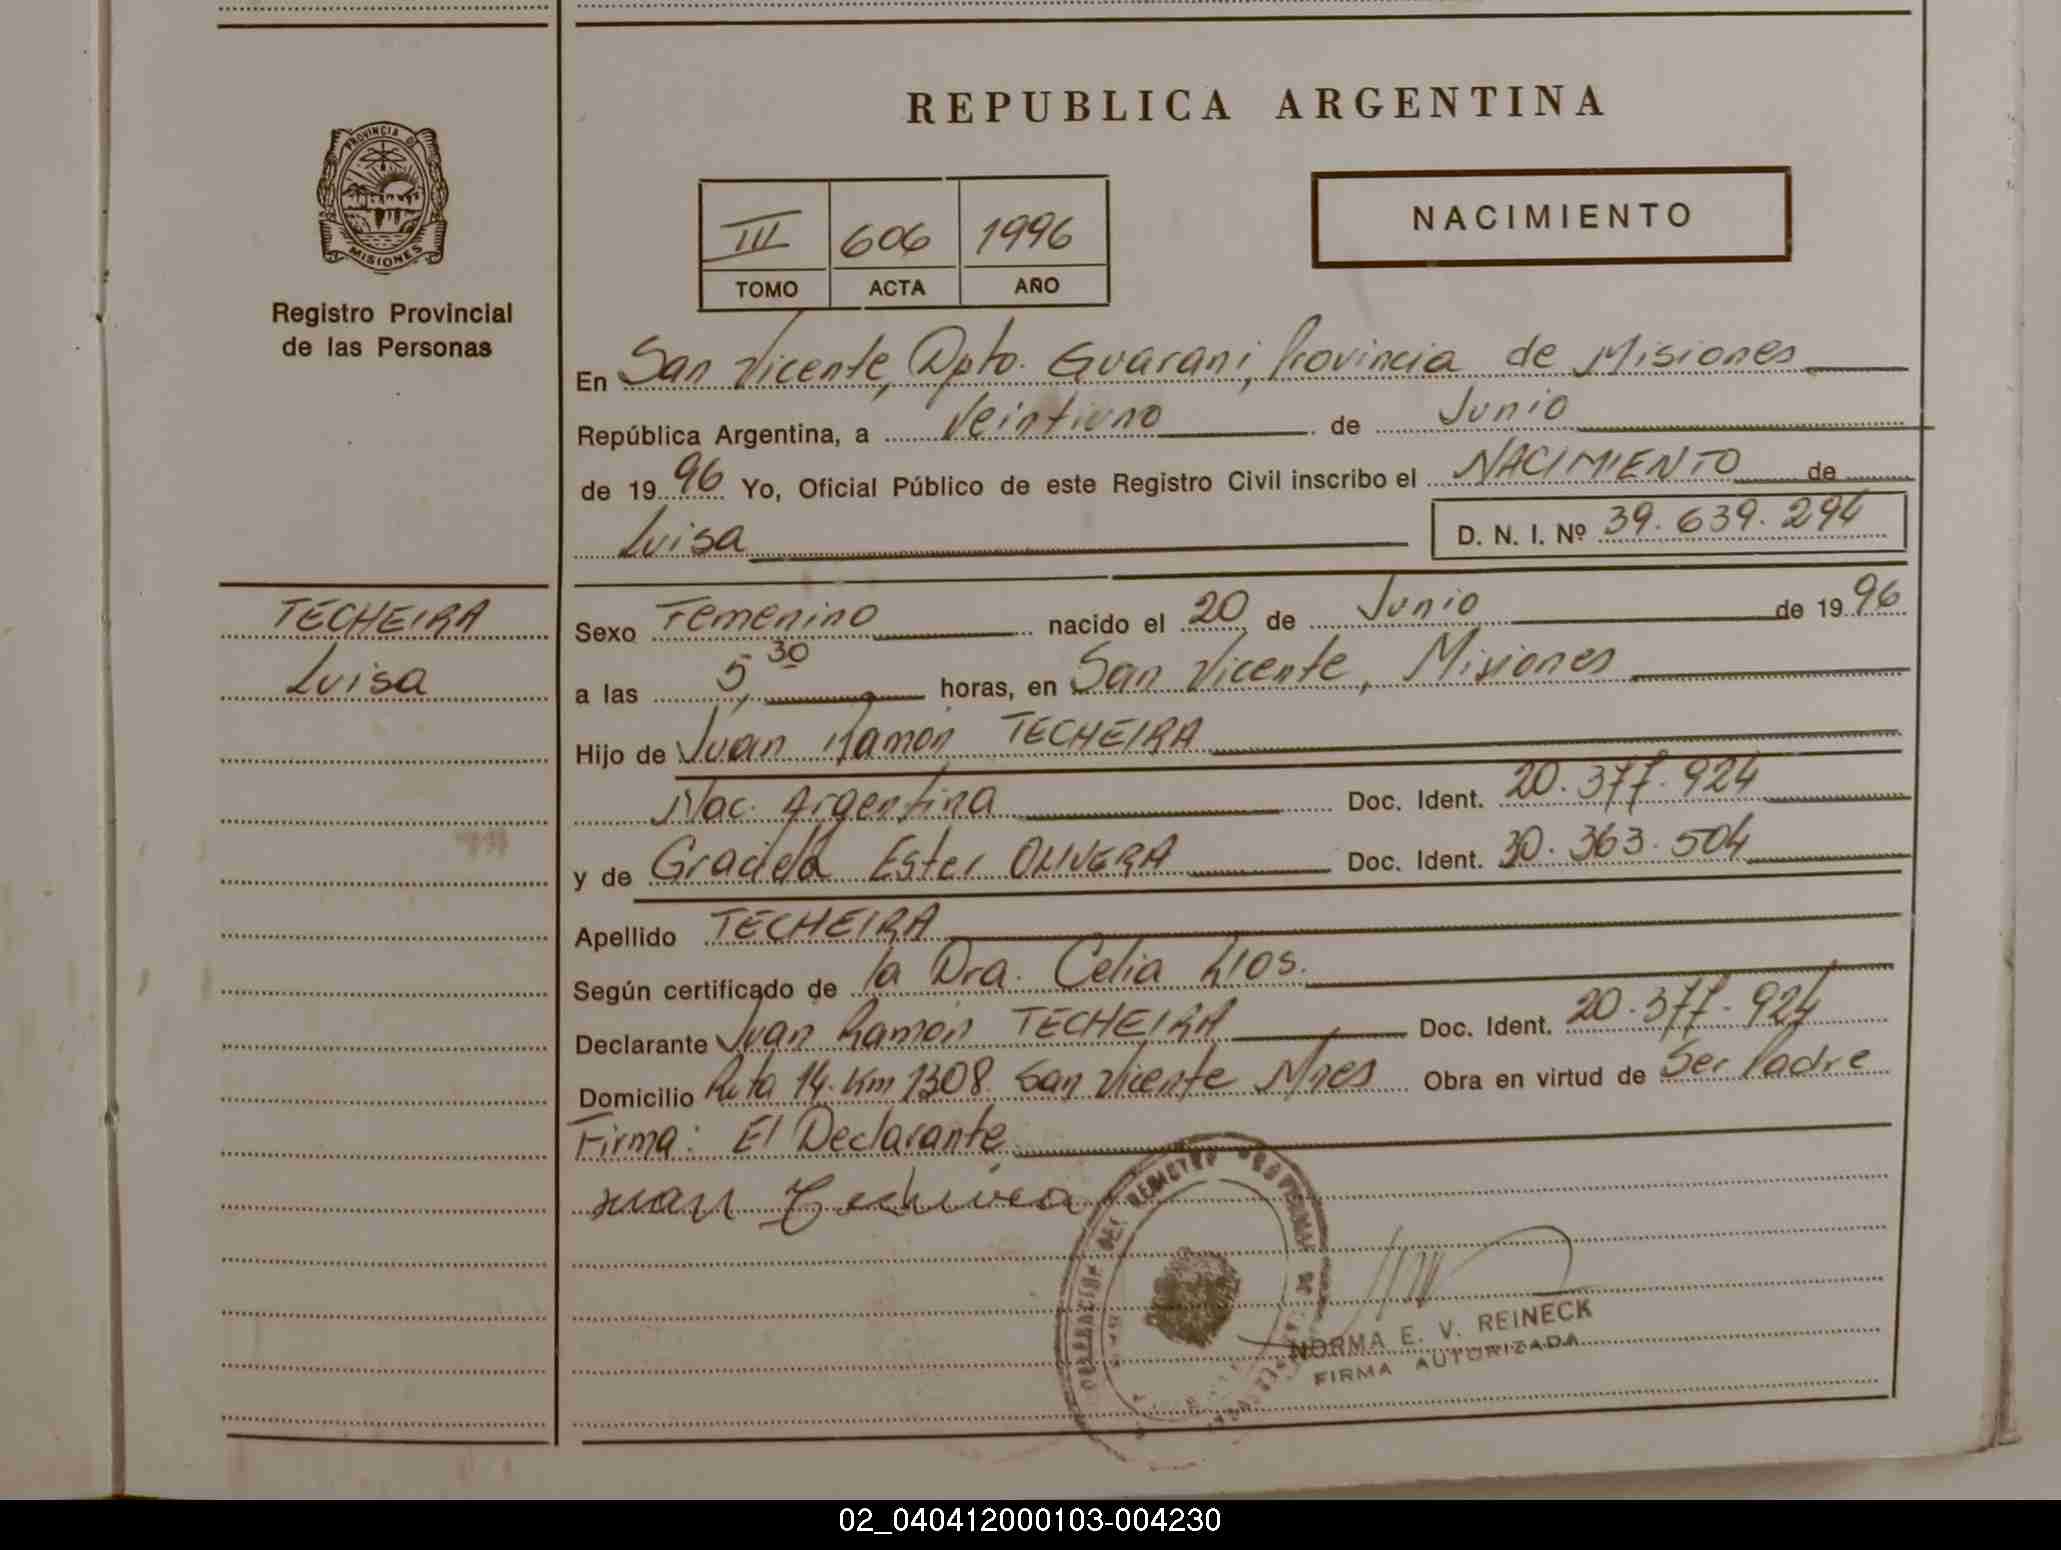 REPUBLICA ARGENTINA
PROVINCIA DE
MISIONES
Registro Provincial
de las Personas
III 606 1996
TOMO ACTA AÑO
NACIMIENTO
En San Vicente, Dpto. Guaraní, Provincia de Misiones
República Argentina, a Veintiuno de Junio
de 1996 Yo, Oficial Público de este Registro Civil inscribo el NACIMIENTO de
Luisa D. N. I. Nº 39.639.294
TECHEIRA
Luisa
Sexo Femenino nacido el 20 de Junio de 1996
a las 5,30 horas, en San Vicente, Misiones
Hijo de Juan Ramón TECHEIRA
Nac. Argentina Doc. Ident. 20.377.924
y de Graciela Ester OLIVERA Doc. Ident. 30.363.504
Apellido TECHEIRA
Según certificado de la Dra. Celia Rios.
Declarante Juan Ramón TECHEIRA Doc. Ident. 20.377.924
Domicilio Ruta 14. Km 1308. San Vicente Mnes Obra en virtud de Ser Padre
Firma: El Declarante
Juan Techeira
DEL REGISTRO PROVINCIAL DE
NORMA E. V. REINECK
FIRMA AUTORIZADA
02_040412000103-004230